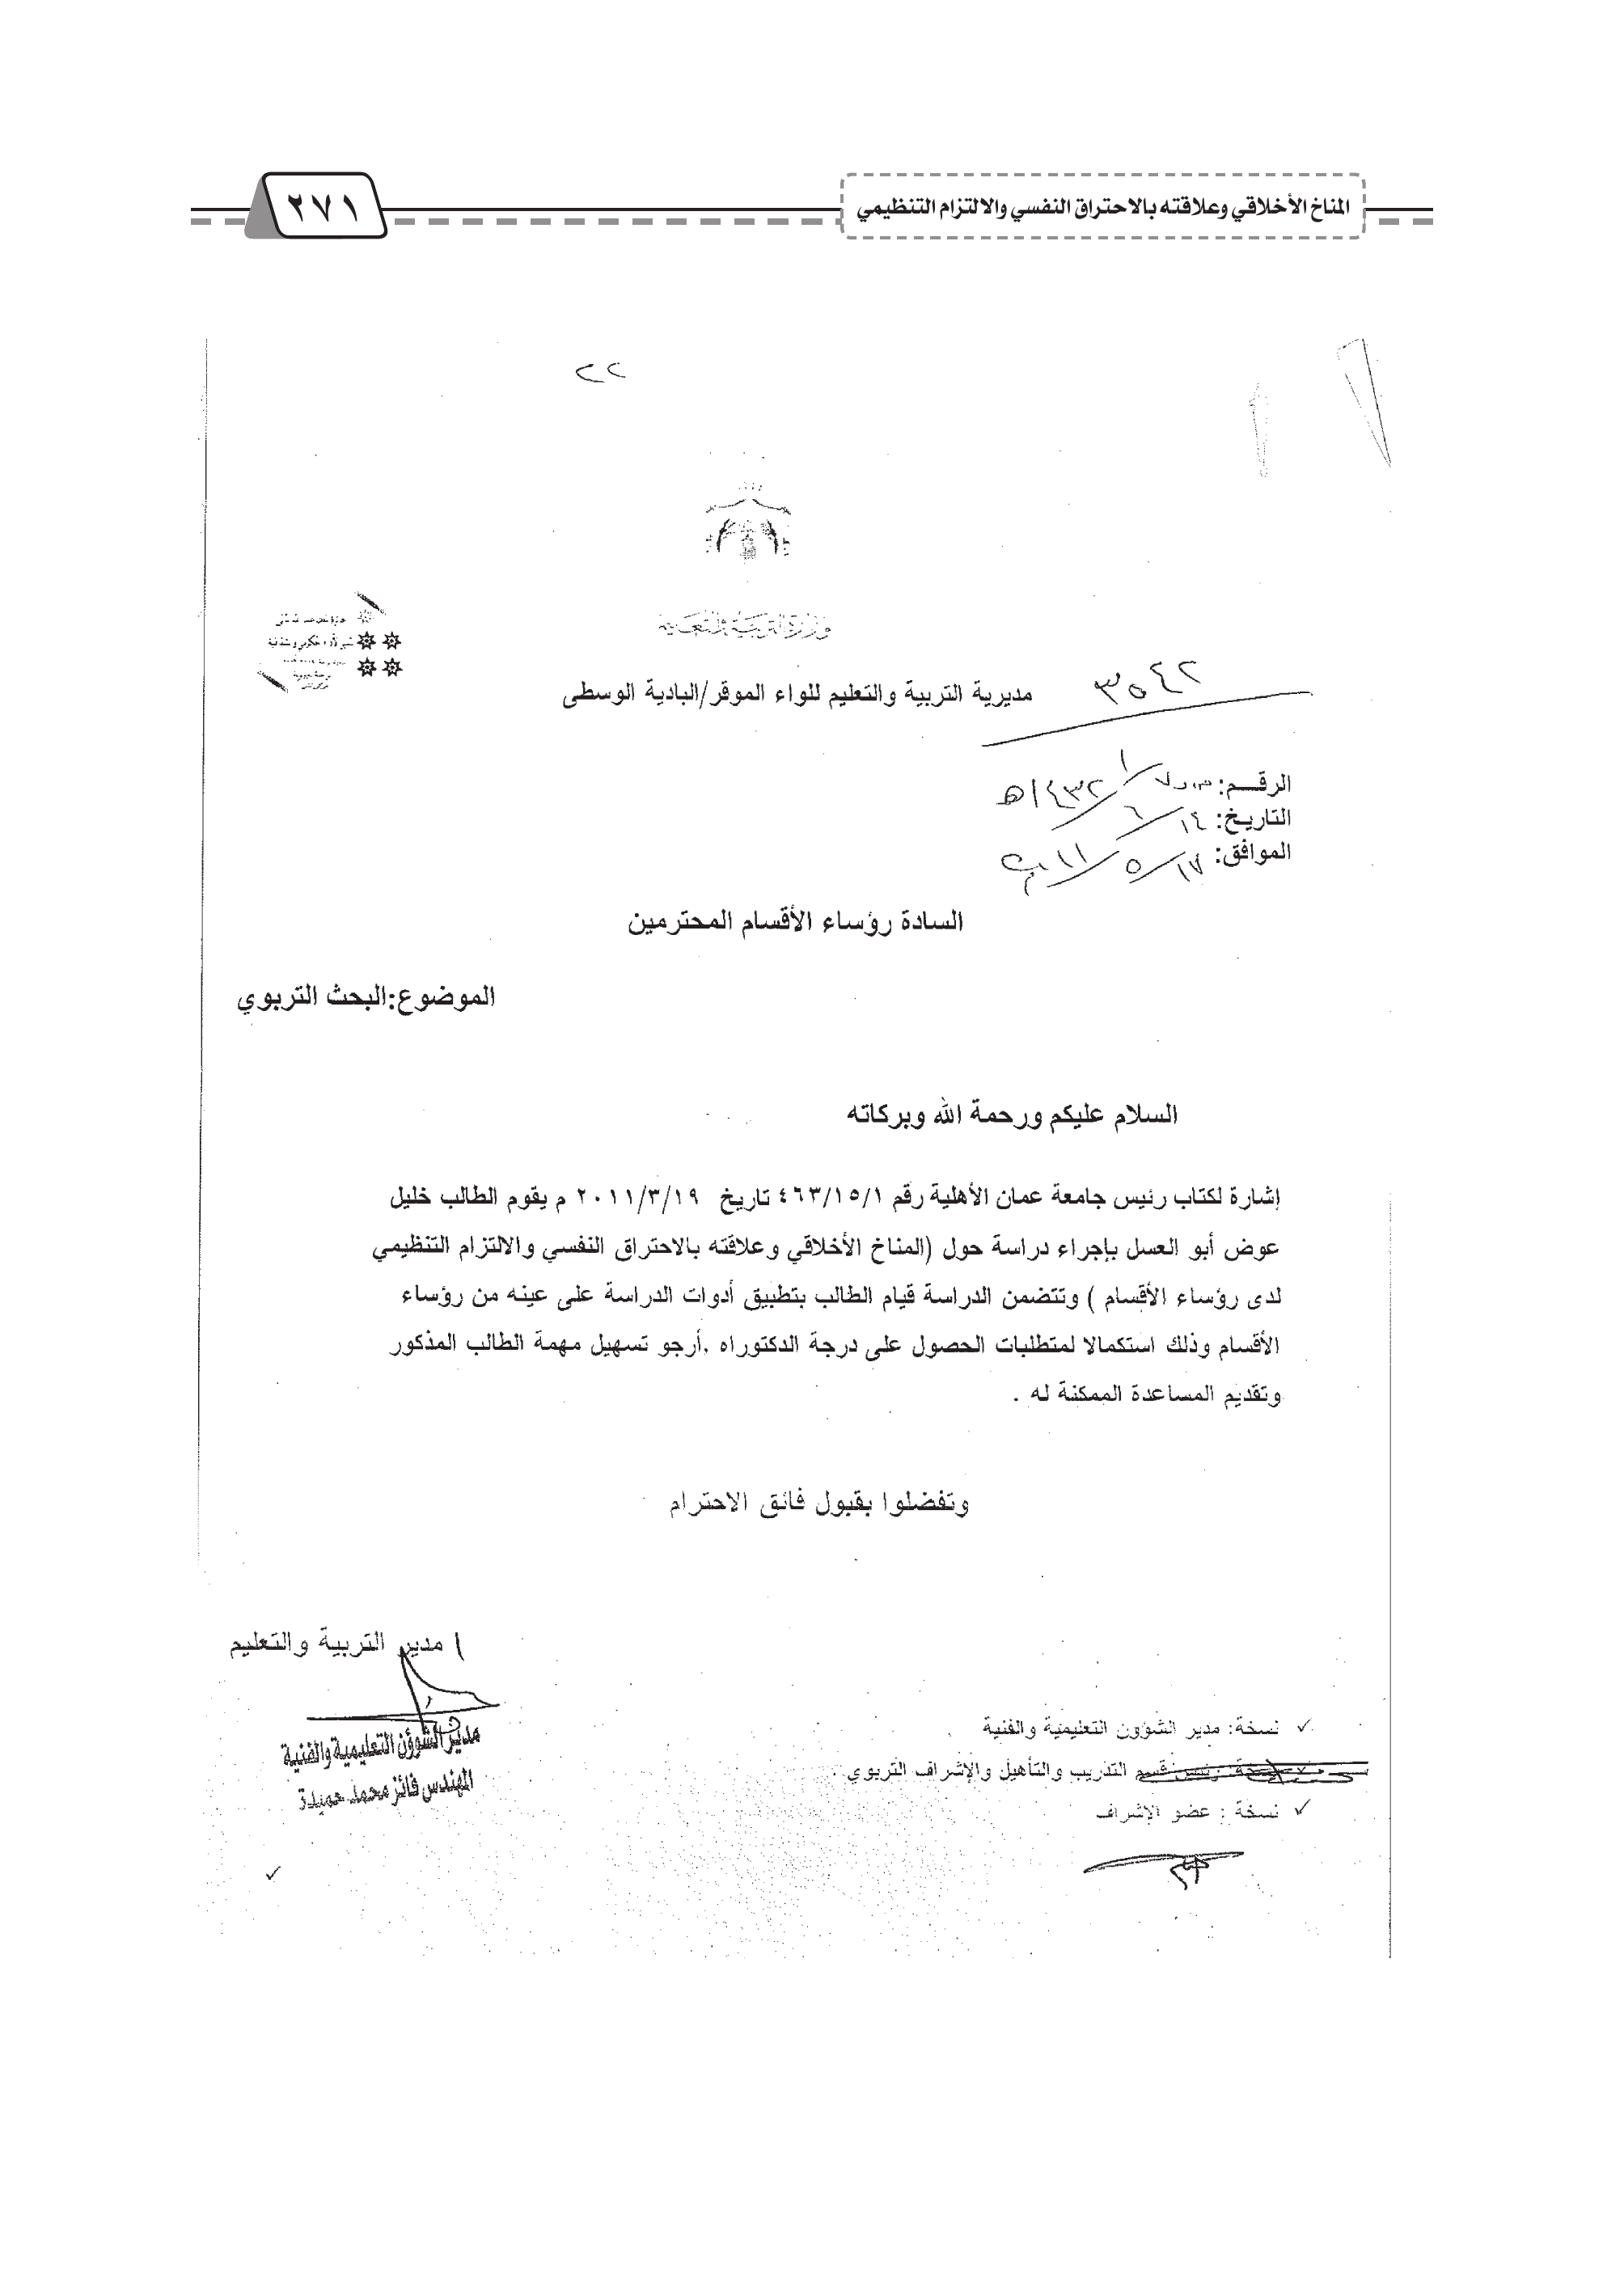 المناخ الأخلاقي وعلاقته بالاحتراق النفسي والالتزام التنظيمي
٢٧١
٢٢
وزارة التربية والتعليم
مديرية التربية والتعليم للواء الموقر/البادية الوسطى
٣٥٤٢
الرقم:
التاريخ: ١٤/٦/١٤٣٢هـ
الموافق: ١٧/٥/١١
السادة رؤساء الأقسام المحترمين
الموضوع:البحث التربوي
السلام عليكم ورحمة الله وبركاته
إشارة لكتاب رئيس جامعة عمان الأهلية رقم ٤٦٣/١٥/١ تاريخ ٢٠١١/٣/١٩ م يقوم الطالب خليل
عوض أبو العسل بإجراء دراسة حول (المناخ الأخلاقي وعلاقته بالاحتراق النفسي والالتزام التنظيمي
لدى رؤساء الأقسام ) وتتضمن الدراسة قيام الطالب بتطبيق أدوات الدراسة على عينه من رؤساء
الأقسام وذلك استكمالا لمتطلبات الحصول على درجة الدكتوراه .أرجو تسهيل مهمة الطالب المذكور
وتقديم المساعدة الممكنة له .
وتفضلوا بقبول فائق الاحترام
/ مدير التربية والتعليم
مدير الشوؤن التعليمية والفنية
المهندس فائز محمد حميدة
✓ نسخة: مدير الشؤون التعليمية والفنية
رئيس قسم التدريب والتأهيل والإشراف التربوي
✓ نسخة : عضو الإشراف